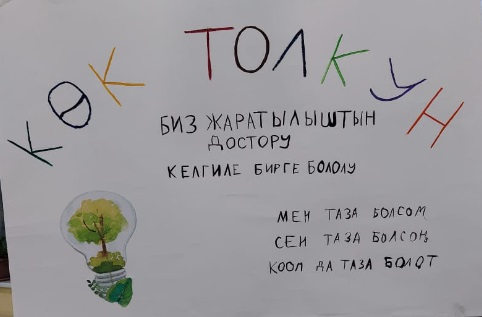 КӨК ТОЛКУН
БИЗ ЖАРАТЫЛЫШТЫН
ДОСТОРУ
КЕЛГИЛЕ БИРГЕ БОЛОЛУ
МЕН ТАЗА БОЛСОМ
СЕН ТАЗА БОЛСОҢ
КООЛ ДА ТАЗА БОЛОТ